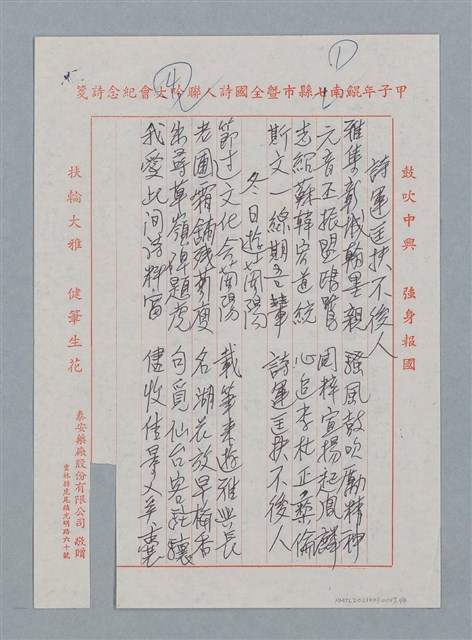 甲子年鯤南七縣市暨全國詩人聯吟大會紀念詩箋
鼓吹中興 強身報國
詩運匡扶不後人
雅集彰城翰墨親 騷風鼓吹勵精神
元音丕振盟鷗鷺 國粹宣揚起鳳麟
志紹蘇韓容道統 心追李杜正彝倫
斯文一線期吾輩 詩運匡扶不後人
冬日遊南陽
節過文化會南陽 載筆來遊雅興長
老圃霜鋪殘菊瘦 名湖花放早梅香
崗尋草嶺碑題虎 句覓仙台客駐驤
我愛此間詩料富 儘收佳景入奚囊
扶輪大雅 健筆生花
泰安藥廠股份有限公司 敬贈
雲林縣虎尾鎮光明路六十號